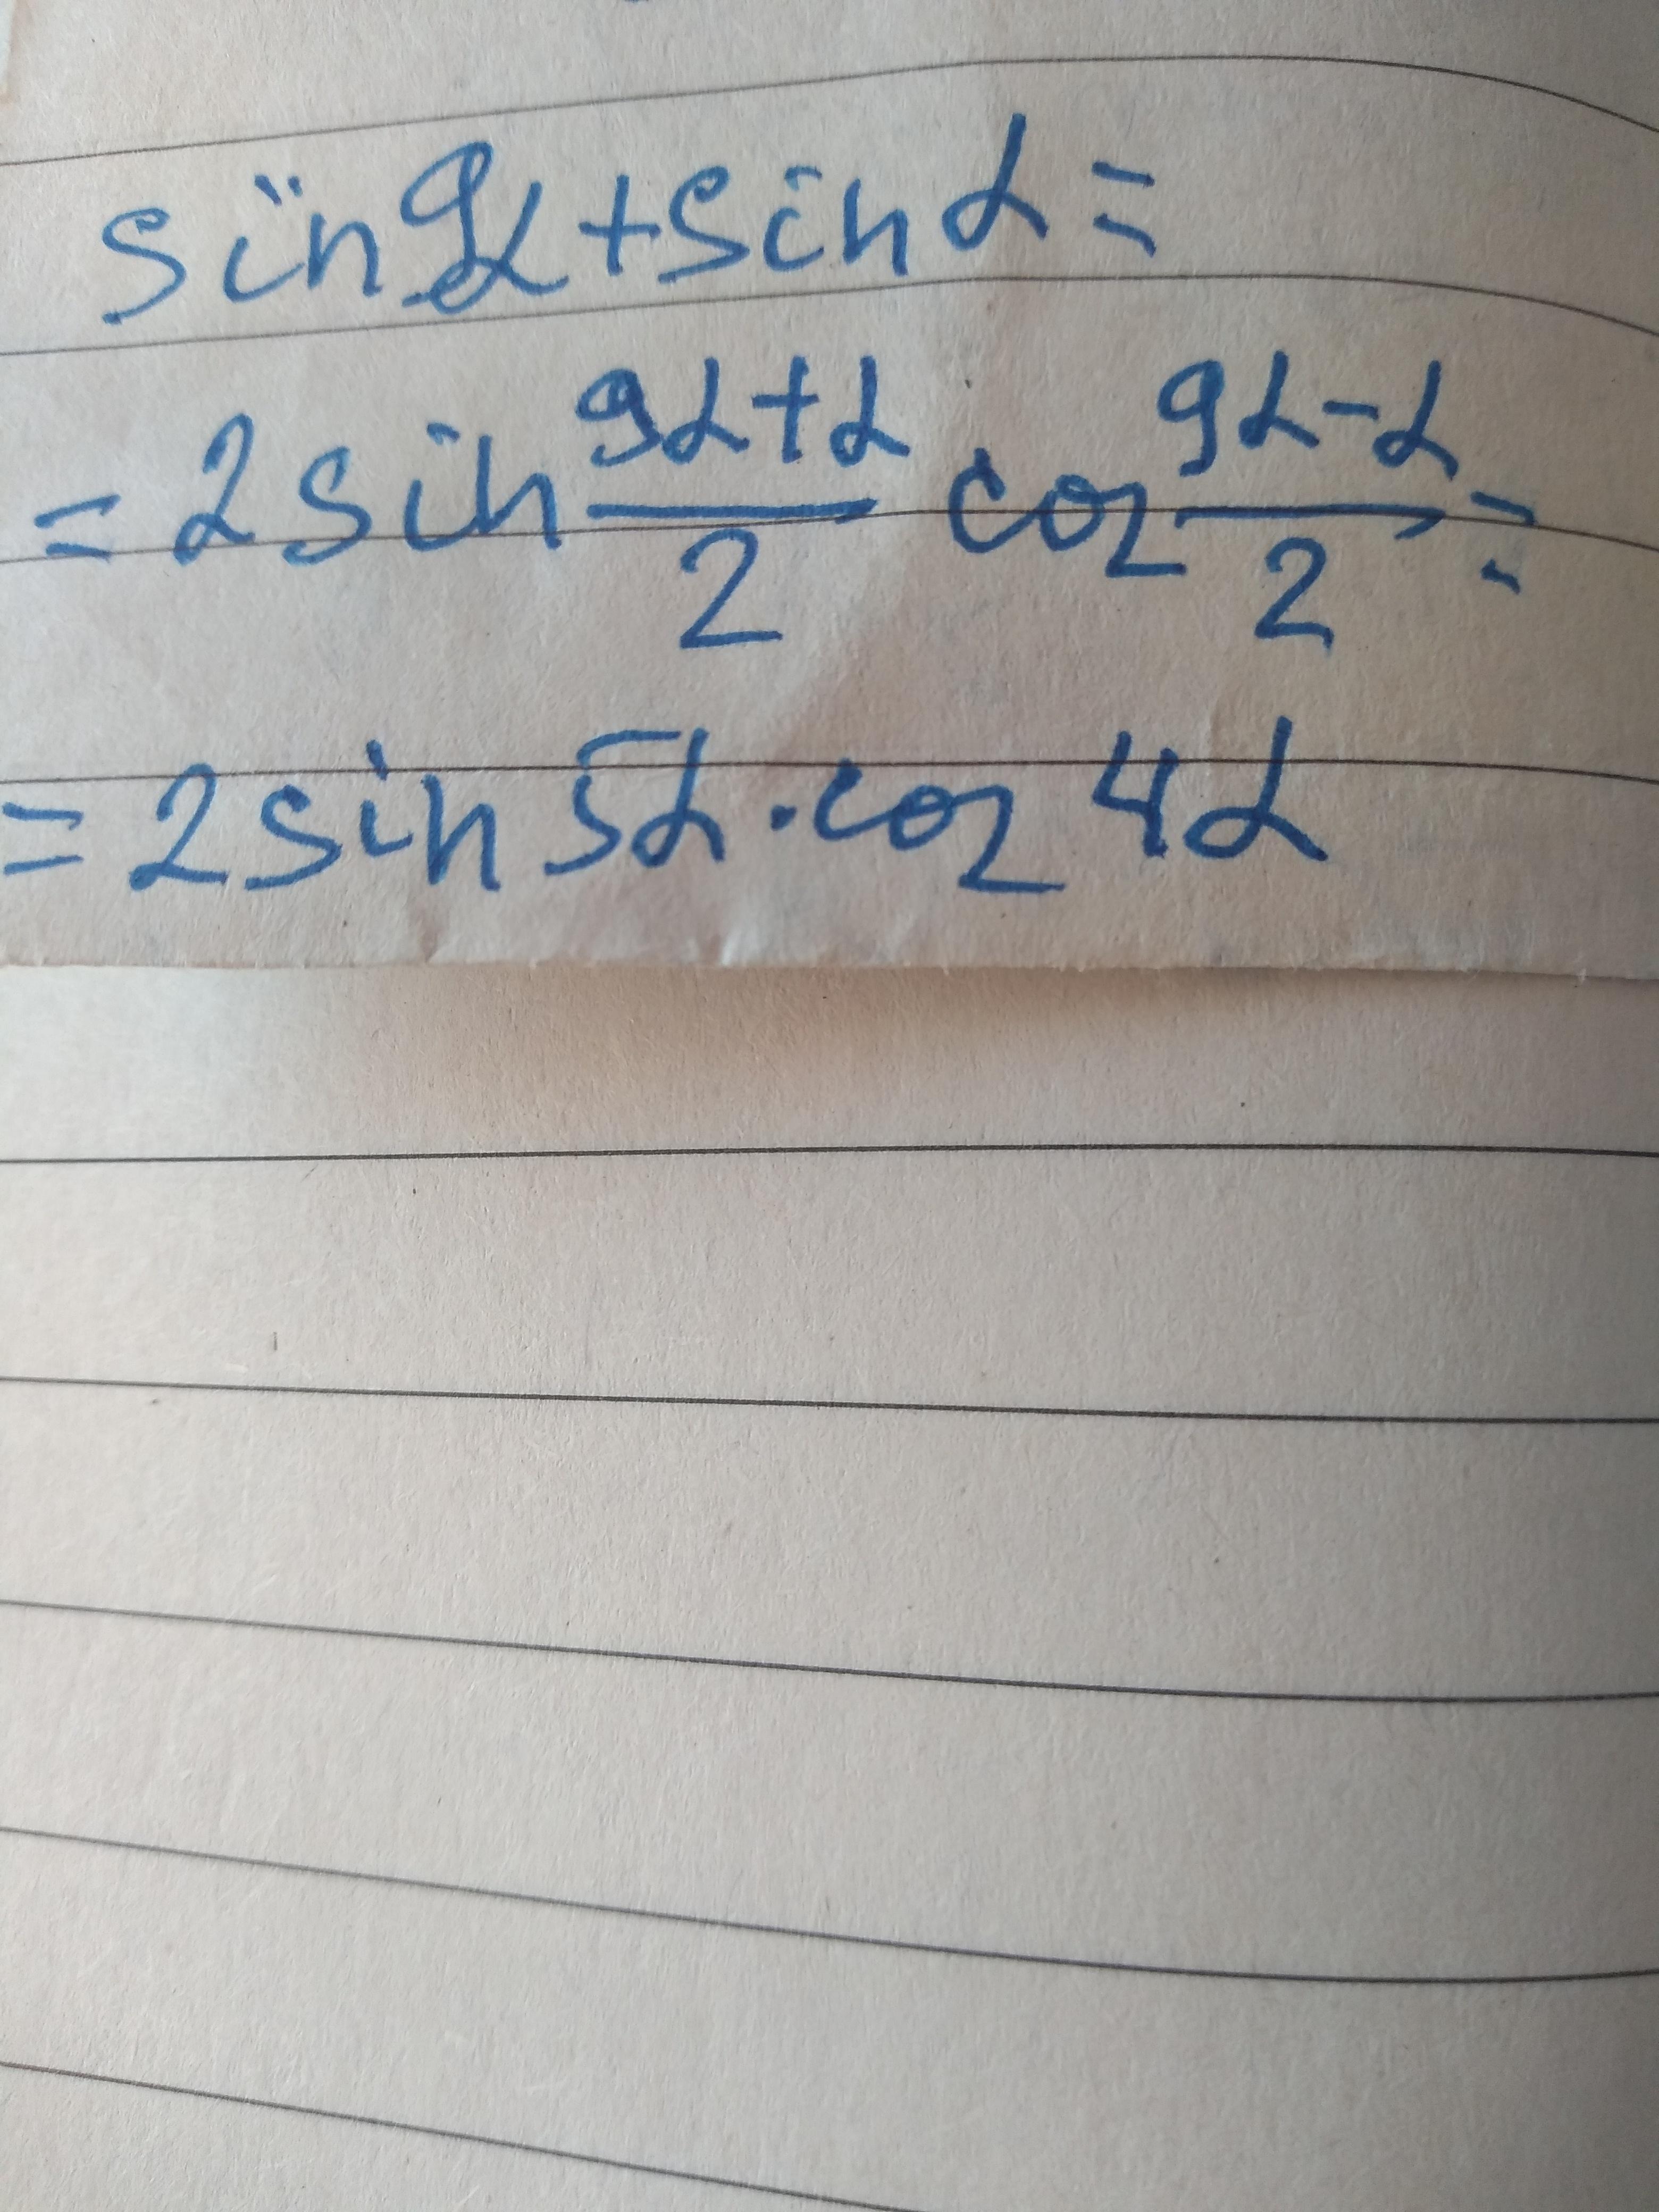 sin9α+sinα=
=2sin (9α+α)/2 cos (9α-α)/2=
=2sin5α·cos4α